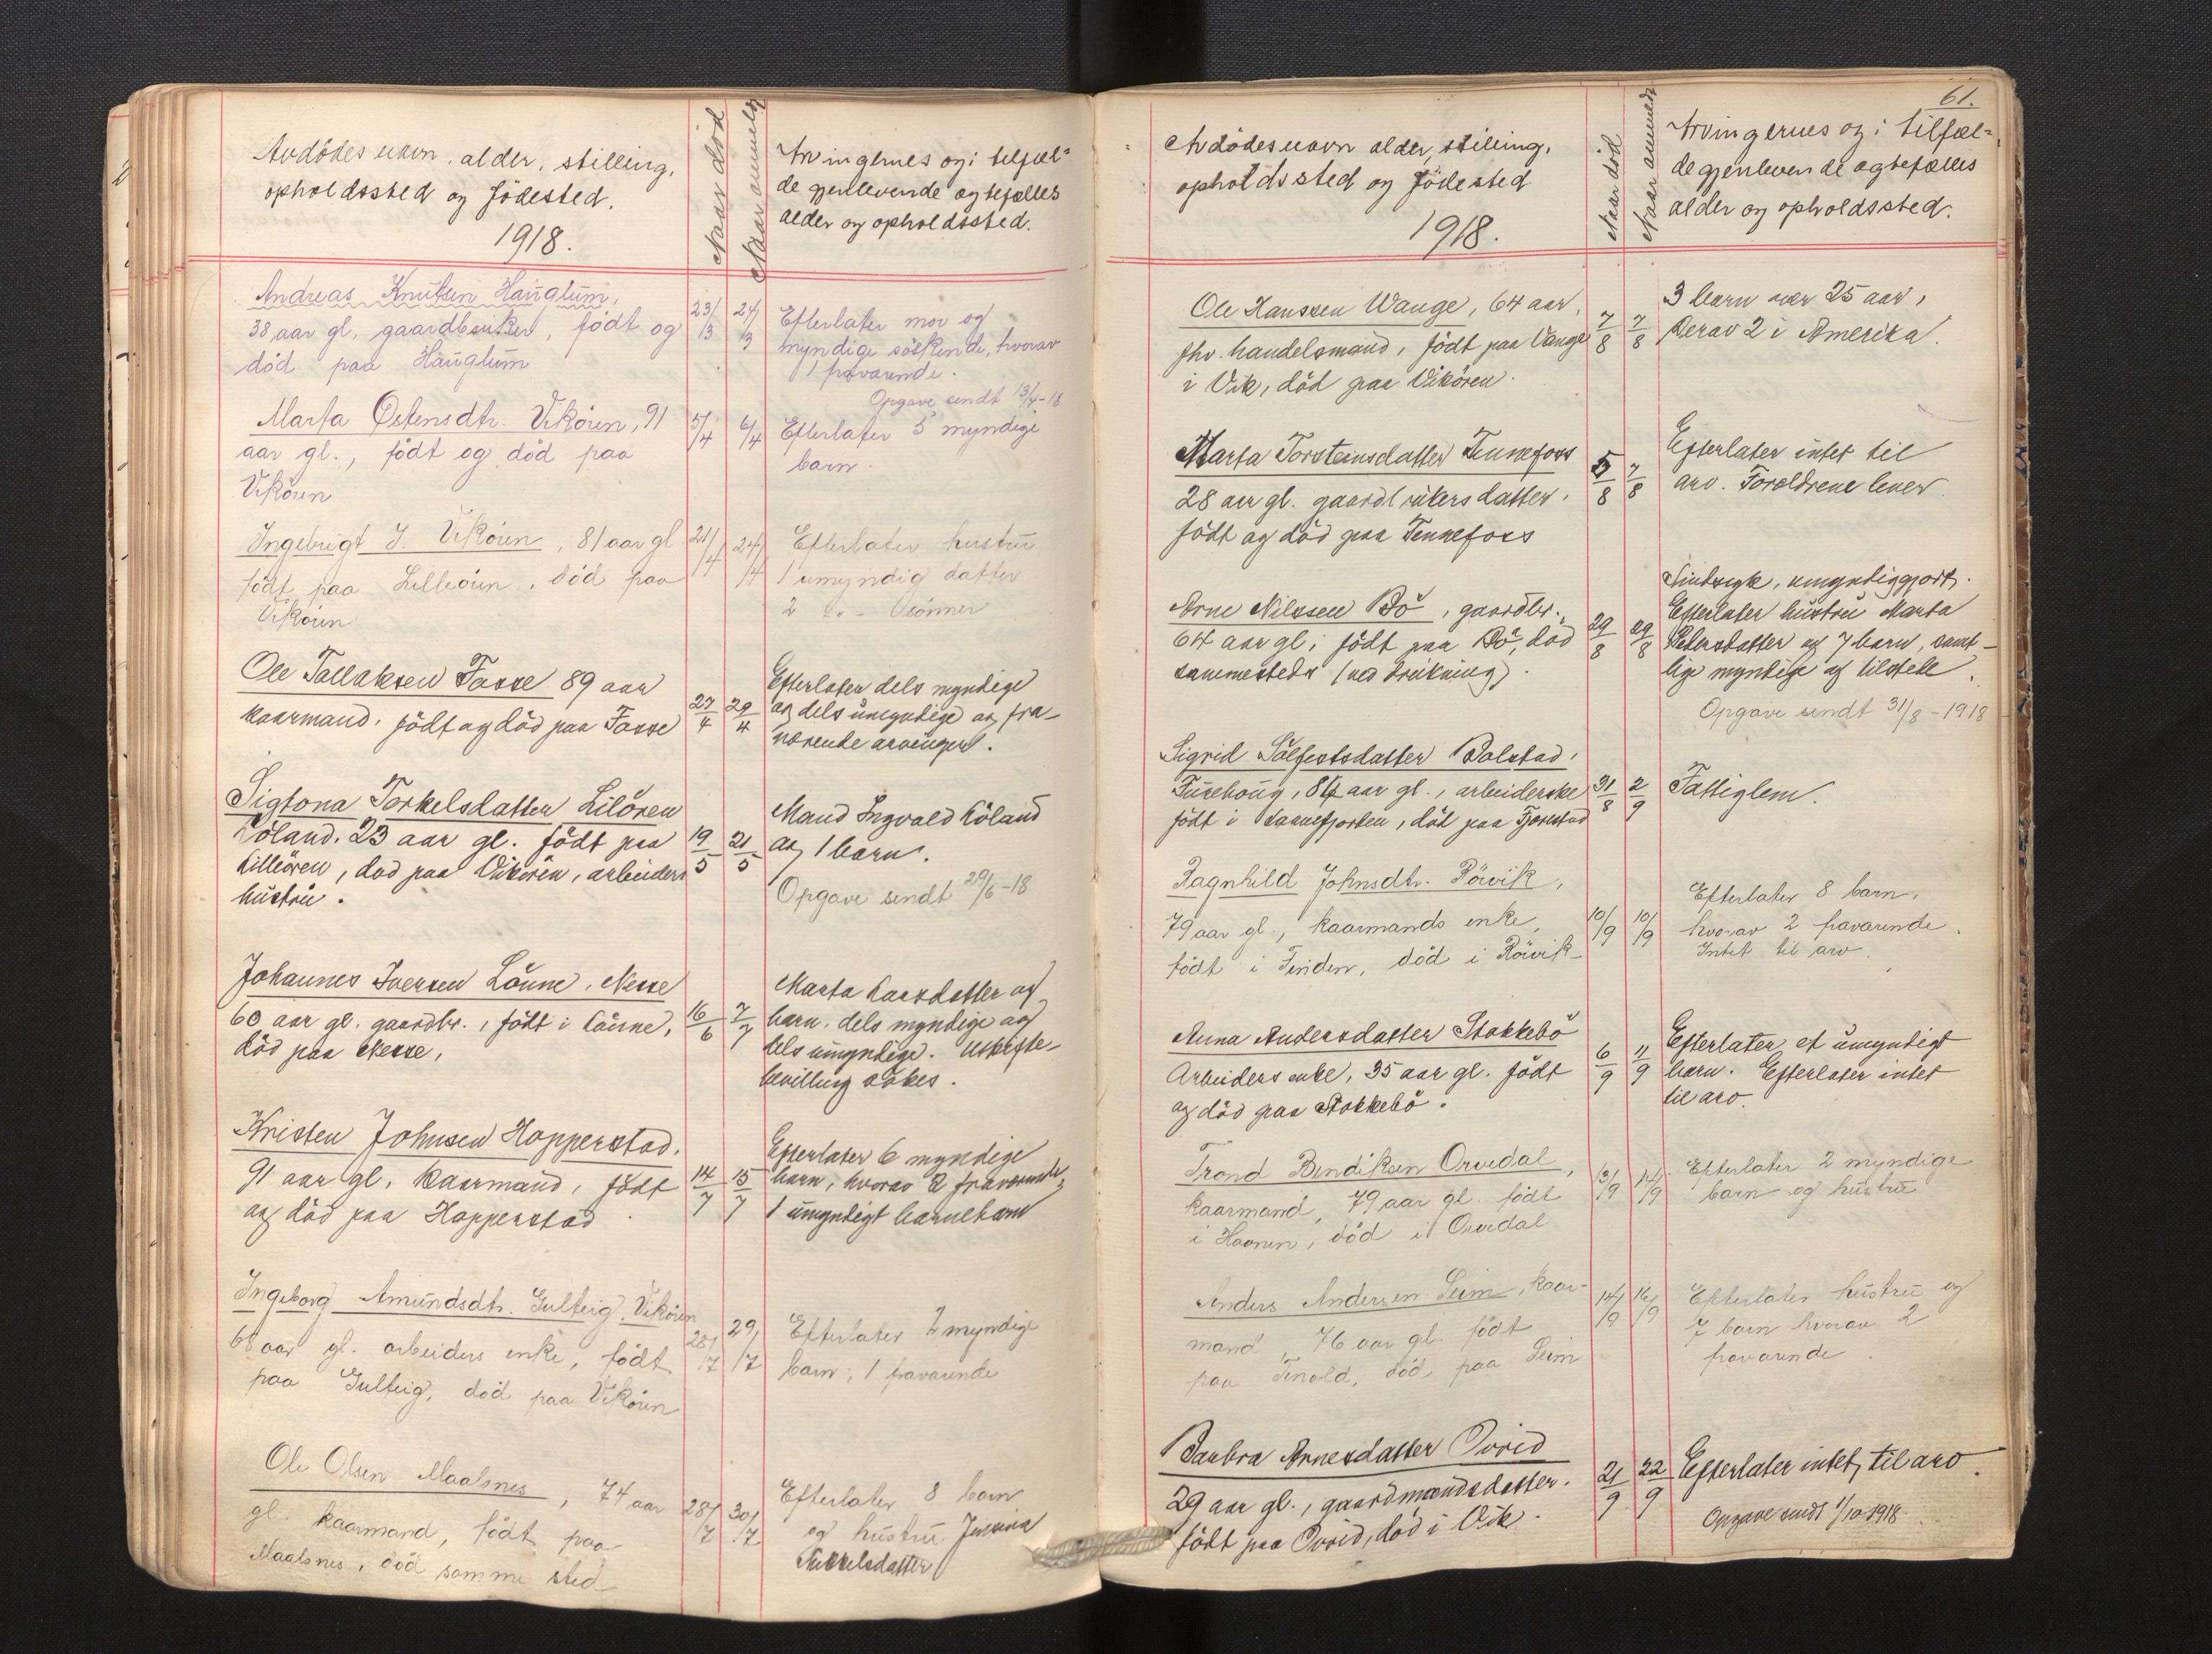 Avdödes navn, alder, stilling,
opholdssted og födested.
1918.
Naar död
Naar anmeldt
Arvingernes og i tilfæl-
de gjenlevende ægtefælles
alder og opholdssted.
Andreas Knutsen Hauglum,
38 aar gl. gaardbruker, födt og
död paa Hauglum
23/3
24/3
Efterlater mor og
myndige söskende, hvorav
1 fraværende.
Opgave sendt 13/4-18
Marta Östensdtr. Vikören, 91
aar gl., födt og död paa
Vikören
5/4
6/4
Efterlater 5 myndige
barn.
Ingebrigt J. Vikören, 81 aar gl
födt paa Lilleören, död paa
Vikören
21/4
24/4
Efterlater hustru
1 umyndig datter
2 -"- sönner
Ole Tallaksen Fosse 89 aar
kaarmand. födt og död paa Fosse
27/4
29/4
Efterlater dels myndige
og dels umyndige og fra-
værende arvinger.
Sigtona Torkelsdatter Lilören
Röland. 23 aar gl. födt paa
Lilleören, död paa Vikören, arbeiders
hustru.
19/5
21/5
Mand Ingvald Röland
og 1 barn.
Opgave sendt 29/6-18
Johannes Iversen Lönne, Nesse
60 aar gl. gaardbr., födt i Lönne,
död paa Nesse,
16/6
7/7
Marta Larsdatter og
barn. dels myndige og
dels umyndige. Uskifte-
bevilling sökes.
Kristen Johnsen Hopperstad.
91 aar gl, kaarmand, födt
og död paa Hopperstad
14/7
15/7
Efterlater 6 myndige
barn, hvorav 2 fraværende,
1 umyndigt barnebarn
Ingeborg Amundsdtr. Gulteig, Vikören
68 aar gl. arbeiders enke, födt
paa Gulteig, död paa Vikören
28/7
29/7
Efterlater 2 myndige
barn, 1 fraværende
Ole Olsen Maalsnes, 74 aar
gl. kaarmand, födt paa
Maalsnes, död samme sted
28/7
30/7
Efterlater 8 barn
og hustru Jensina
61.
Avdödes navn alder, stilling,
opholdssted og födested
1918.
Naar död
Naar anmeldt
Arvingernes og i tilfæl-
de gjenlevende ægtefælles
alder og opholdssted.
Ole Hanssen Wange, 64 aar,
fhv. handelsmand, födt paa Vange
i Vik, död paa Vikören.
7/8
7/8
3 barn over 25 aar,
derav 2 i Amerika.
Marta Torsteinsdatter Tennefoss
28 aar gl. gaardbrukers datter.
födt og död paa Tennefoss
5/8
7/8
Efterlater intet til
arv. Forældrene lever.
Arne Nilssen Bö, gaardbr.,
64 aar gl; födt paa Bö, död
sammesteds (ved drukning).
29/8
29/8
Sindsyk, umyndiggjort.
Efterlater hustru Marta
Petersdatter og 7 barn, samt-
lige myndige og tilstede.
Opgave sendt 31/8-1918
Sigrid Sölfestsdatter Bolstad,
Tunehoug, 84 aar gl., arbeiderske
födt i Aanefjorden, död paa Tjorestad
31/8
2/9
Fattiglem.
Ragnhild Johnsdtr. Rörvik,
79 aar gl., kaarmands enke,
födt i Finden, död i Rörvik
10/9
10/9
Efterlater 8 barn,
hvorav 2 fraværende.
Intet til arv.
Anna Andersdatter Stokkebö
Arbeiders enke, 35 aar gl. födt
og död paa Stokkebö.
6/9
11/9
Efterlater et umyndigt
barn. Efterlater intet
til arv.
Trond Bendiksen Orvedal,
kaarmand, 79 aar gl. födt
i Hoonen, död i Orvedal
13/9
14/9
Efterlater 2 myndige
barn og hustru
Anders Andersen Seim, kaar-
mand, 76 aar gl. födt
paa Tenold, död paa Seim
14/9
16/9
Efterlater hustru og
7 barn hvorav 2
fraværende.
Baubra Arnesdatter Ovrid
29 aar gl., gaardmandsdatter.
födt paa Ovrid, död i Vik.
21/9
22/9
Efterlater intet til arv.
Opgave sendt 1/10-1918